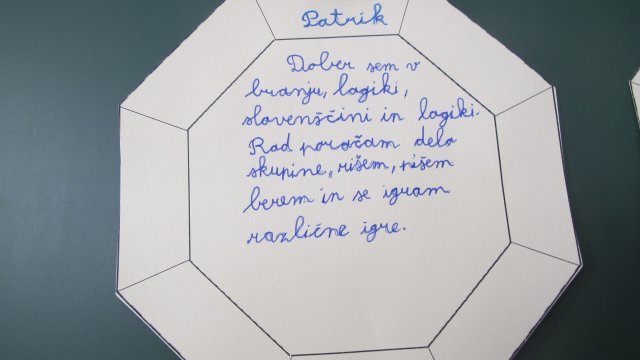 Patrik
Dober sem v
branju, logiki,
slovenščini in logiki.
Rad poročam delo
skupine, rišem, pišem
berem in se igram
različne igre.